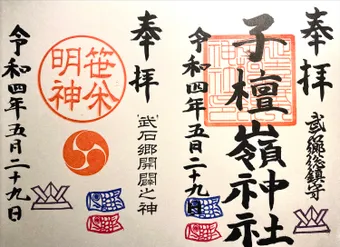 奉拝
武郷総鎮守
子檀嶺神社
令和四年五月二十九日
奉拝
武石郷開闢之神
笹焼
明神
令和四年五月二十九日